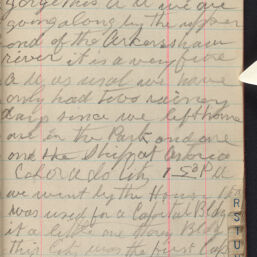 gorge this A M we are
going along by the upper
end of the Arkansaw
river it is a very fine
A M as usual we have
only had two rainey
days since we left home
one in the Park and one
on the Ship at
Colorado City 1-50 P M
we went by the House that
was used for a Capital Bldg
it a little one Story Bldg
this City was the first Cap
R
S
T
U